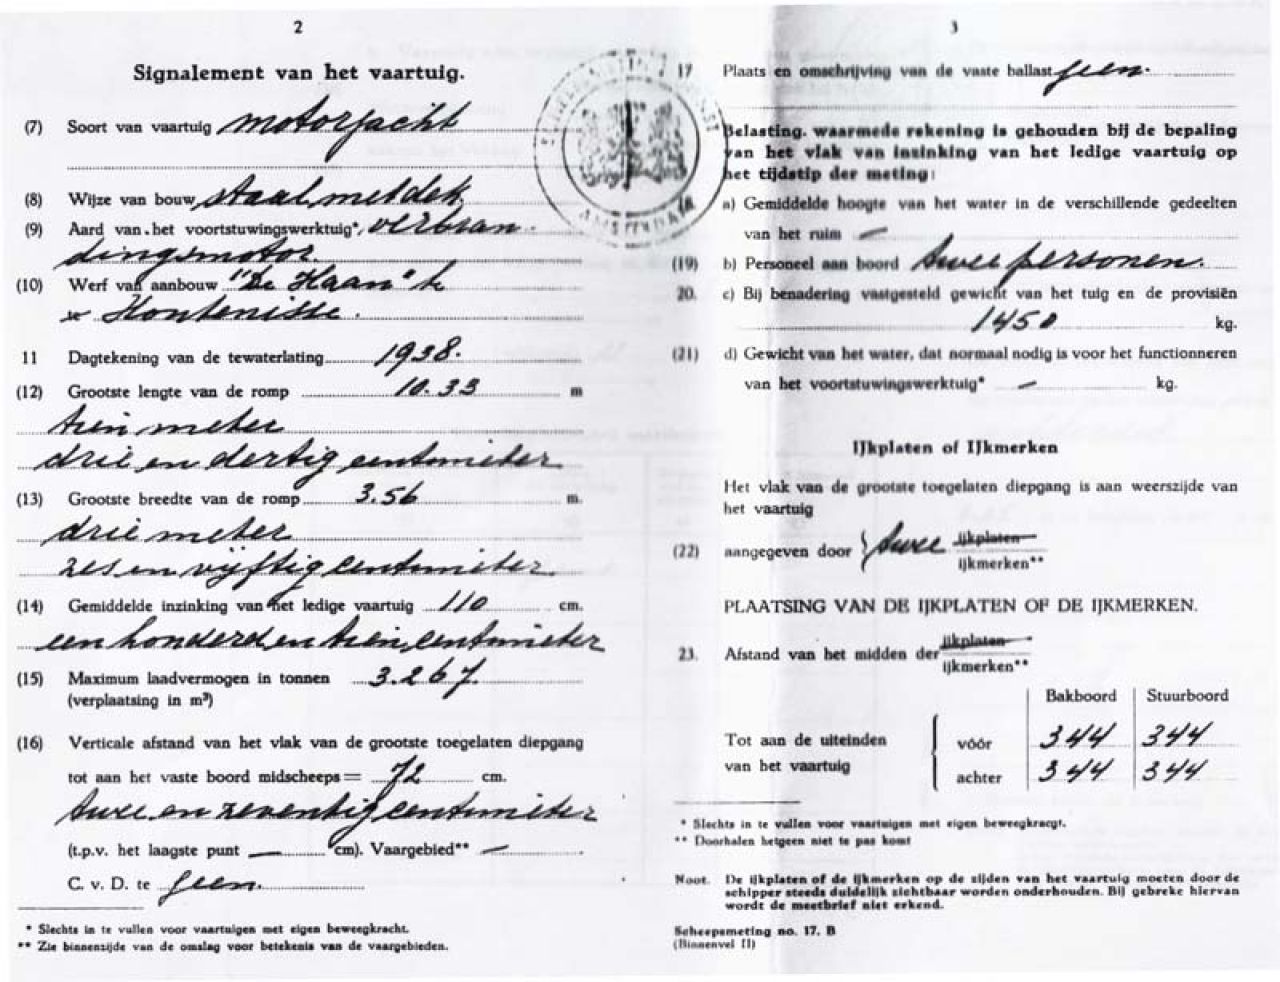 2
Signalement van het vaartuig.
(7) Soort van vaartuig motorjacht
(8) Wijze van bouw staal met dek
(9) Aard van het voortstuwingswerktuig*, verbran-
dingsmotor.
(10) Werf van aanbouw "De Haan" te
Hontenisse.
11 Dagtekening van de tewaterlating 1938.
(12) Grootste lengte van de romp 10.33 m
tien meter
drie en dertig centimeter
(13) Grootste breedte van de romp 3.56 m.
drie meter
zes en vijftig centimeter.
(14) Gemiddelde inzinking van het ledige vaartuig 110 cm.
een honderd en tien centimeter
(15) Maximum laadvermogen in tonnen 3.267.
(verplaatsing in m³)
(16) Verticale afstand van het vlak van de grootste toegelaten diepgang
tot aan het vaste boord midscheeps = 72 cm.
twee en zeventig centimeter
(t.p.v. het laagste punt — cm). Vaargebied** —
C. v. D. te geen.
* Slechts in te vullen voor vaartuigen met eigen beweegkracht.
** Zie binnenzijde van de omslag voor betekenis van de vaargebieden.
AMSTERDAM
3
17 Plaats en omschrijving van de vaste ballast geen.
Belasting, waarmede rekening is gehouden bij de bepaling
van het vlak van inzinking van het ledige vaartuig op
het tijdstip der meting:
18. a) Gemiddelde hoogte van het water in de verschillende gedeelten
van het ruim —
(19) b) Personeel aan boord twee personen.
20. c) Bij benadering vastgesteld gewicht van het tuig en de provisiën
1450 kg.
(21) d) Gewicht van het water, dat normaal nodig is voor het functionneren
van het voortstuwingswerktuig* — kg.
IJkplaten of IJkmerken
Het vlak van de grootste toegelaten diepgang is aan weerszijde van
het vaartuig
(22) aangegeven door { twee ijkplaten
ijkmerken**
PLAATSING VAN DE IJKPLATEN OF DE IJKMERKEN.
23. Afstand van het midden der ijkplaten
ijkmerken**
Bakboord Stuurboord
Tot aan de uiteinden vóór 344 344
van het vaartuig achter 344 344
* Slechts in te vullen voor vaartuigen met eigen beweegkracgt.
** Doorhalen hetgeen niet te pas komt
Noot. De ijkplaten of de ijkmerken op de zijden van het vaartuig moeten door de
schipper steeds duidelijk zichtbaar worden onderhouden. Bij gebreke hiervan
wordt de meetbrief niet erkend.
Scheepsmeting no. 17. B
(Binnenvel II)